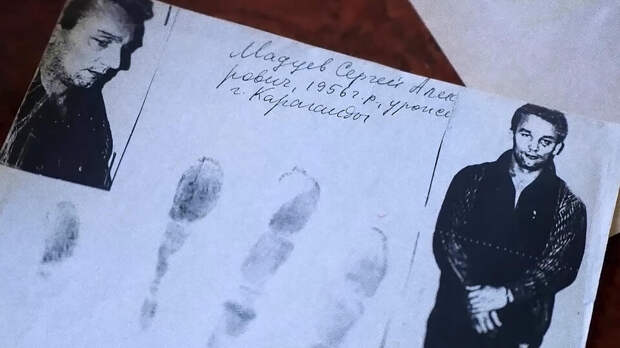 Мадуев Сергей Алек
рович, 1956 г.р., уроже
г. Караганды